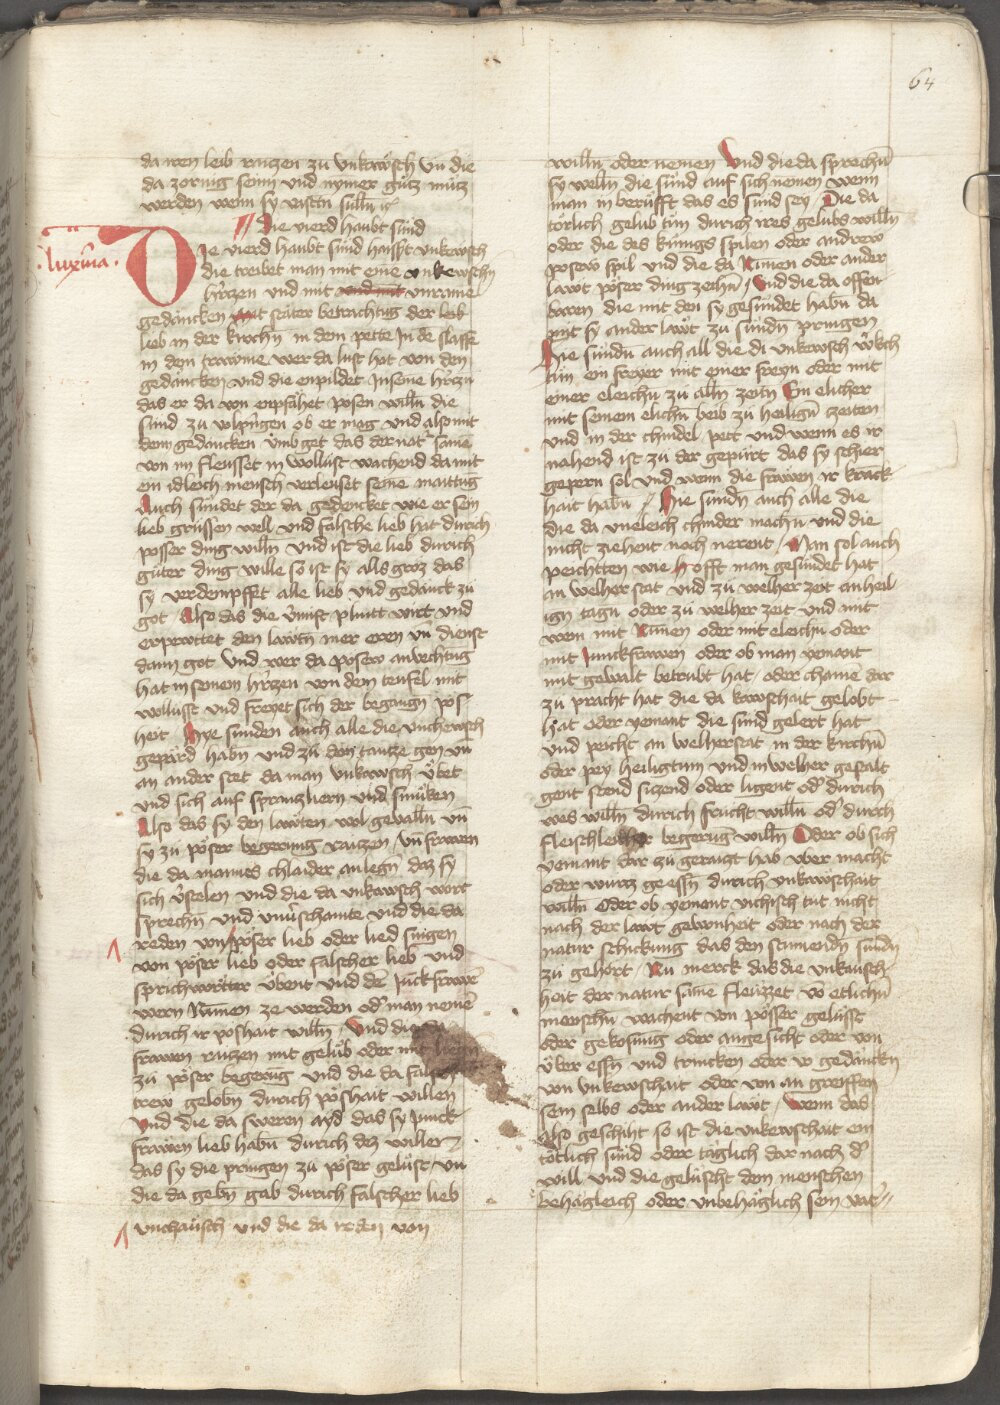 64
da iren leib raiczen zu vnkewsch vn̄ die
da zornig seinn vnd nymer gutz mutz
werden wenn sy vastn̄ sulln̄ ꝛc
Die vierd haubt sünd
·luxuria·
Die vierd haubt sünd haisst vnkewsch
die treibet man mit eine vnkewschn̄
hr̄czen vnd mit vnraine
gedäncken mit stäter betrachtūg der leib
lieb an der kirchn̄ in dem pette In dē slaffe
in dem trawme wer da lust hat von den
gedäncken vnd die enpildet In seine hr̄czn̄
das er da von enpfähet posen willn̄ die
sünd zu volpringen ob er mag vnd also mit
dem gedäncken vmb get das der nat° same
von im fleusset in wollust wachend da mit
ein idleich mensch verleuset seine maittūg
Auch sündet der da gedencket wie er sein
lieb grüssen well vnd falsche lieb hat durich
posser ding willn̄ vnd ist die lieb durich
güter ding wille so ist sy als groz das
sy verdempffet alle lieb vnd gedänck zu
got Also das die v̄nuft plintt wirt vnd
erperwttet den lewtn̄ mer eren vn̄ dienst
dann got Vnd wer da posew anvechtūg
hat in seinem hr̄czen von dem teufel mit
wollust vnd frewet sich der begangn̄ pos
heit Hye sünden auch alle die vnchewsch
gepärd habn̄ vnd zu dem tancze gen vn̄
an ander stet da man vnkewsch übet
vnd sich auf spranczliern vnd smuken
Also das sy den lawten wol gevalln̄ vn̄
sy zu pöser begerung raiczen vn̄ frawen
die da mannes chlaider anlegn̄ daz sy
sich v̄stelen vnd die da vnkewsch wort
sprechn̄ vnd vnūschamte vnd die da
reden von pöser lieb oder lied singen
von pöser lieb oder falscher lieb vnd
sprichwörtter übent vnd dē Junckfrawē
wern Nūnen ze werden od° man nemē
durich ir poshait willn̄ Vnd die da
frawen raizen mit gelüb oder mit
zu pöser begerūg vnd die da falsch
trew gelobn̄ durich poshait willen
vnd die da sweren ayd das sy Junck
frawen lieb habn̄ durich daz willen
das sy die pringen zu pöser gelüst vn̄
die da gebn̄ gab durich falscher lieb
vnchaüsch vnd die da reden von
willn̄ oder nemen Vnd die da sprechn̄
sy welln̄ die sünd auf sich nemen wenn
man in berüfft das es sünd sey Die da
törlich gelub tün durich ires gelubs willn̄
oder die des künigs spilen oder andrew
posew spil vnd die da Nūnen oder ander
lawt pöser ding zeihn̄ vnd die da offen
baren die mit den sy gesündet habn̄ da
mit sy ander lawt zu sündn̄ pringen
Hie sündn̄ auch all die di vnkewsch wökch
tün ein freyer mit einer freyn oder mit
einer eleichn̄ zu alln̄ zeitn̄ Ein elicher
mit seinem elichn̄ beib zu heilign̄ zeiten
vnd in der chindel pett vnd wenn es ir
nahend ist zu der gepürt das sy schier
gepern sol vnd wenn die frawen ir kranck
hait habn̄ Hie sündn̄ auch alle die
die da vneleich chinder machn̄ vnd die
nicht ziehent noch nerent Man sol auch
peichtten wie offt man gesündet hat
an welher stat vnd zu welher zeit an heil
ign̄ tagn̄ oder zu welher zeit vnd mit
wem mit Nūnen oder mit eleichn̄ oder
mit Junckfrawen oder ob man yemant
mit gewalt betrubt hat oder chainē dar
zu pracht hat die da kewschait gelobt
hat oder yemant die sünd gelert hat
vnd peicht an welher stat in der kirchn̄
oder pey heiligtum vnd in welher gestalt
gent stend siczend oder ligent od° durich
wes willn̄ durich frucht willn̄ od° durch
fleischleicher begerūg willn̄ Oder ob sich
yemant dar zu geraiczt hab vber macht
oder wurcz gessn̄ durich vnkewschait
willn̄ Oder ob yement vichisch tut nicht
nach der lewt gewonheit oder nach der
natur schickung das den stumendn̄ sündn̄
zu gehört Nu merck das die vnkausch
heit der natur sāme fleüzzet vō etlichn̄
menschn̄ wachent von pösser gelüsst
oder gekosūng oder angesicht oder von
über essn̄ vnd trincken oder vō gedanckn̄
von vnkewschait oder von an greiffen
sein selbs oder ander lawt Wenn das
also geschiht so ist die vnkewschait ein
tötlich sünd oder täglich dar nach d°
will vnd die gelüscht dem menschen
behägleich oder vnbehäglich sein war